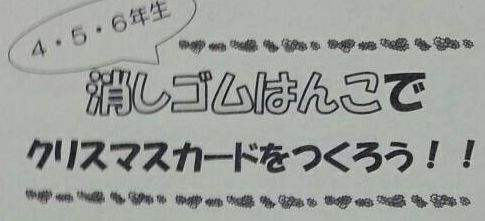 4・5・6年生
消しゴムはんこで
クリスマスカードをつくろう！！